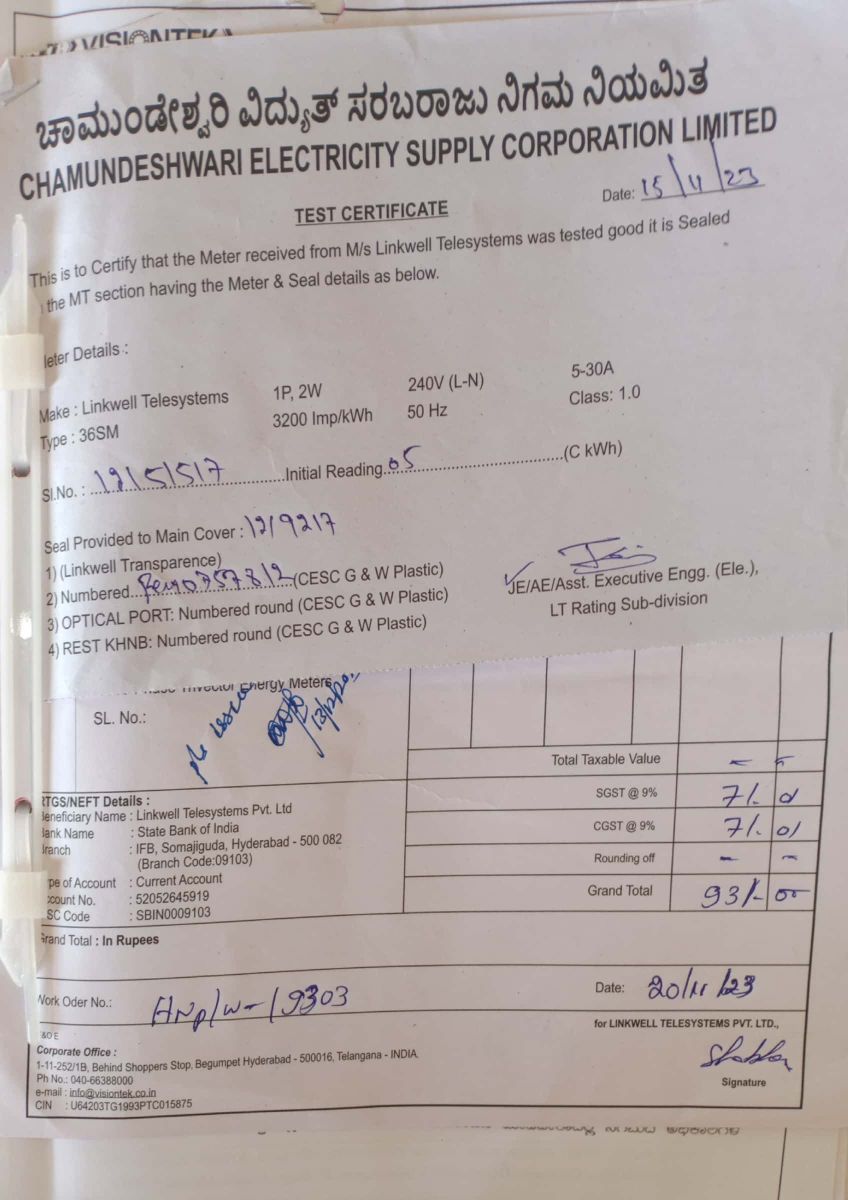 VISIONTEK
ಚಾಮುಂಡೇಶ್ವರಿ ವಿದ್ಯುತ್ ಸರಬರಾಜು ನಿಗಮ ನಿಯಮಿತ
CHAMUNDESHWARI ELECTRICITY SUPPLY CORPORATION LIMITED
Date: 15/11/23
TEST CERTIFICATE
This is to Certify that the Meter received from M/s Linkwell Telesystems was tested good it is Sealed
the MT section having the Meter & Seal details as below.
eter Details :
Make : Linkwell Telesystems 1P, 2W 240V (L-N) 5-30A
Type : 36SM 3200 Imp/kWh 50 Hz Class: 1.0
Sl.No. : Initial Reading 05 (C kWh)
Seal Provided to Main Cover :
1) (Linkwell Transparence)
2) Numbered (CESC G & W Plastic)
3) OPTICAL PORT: Numbered round (CESC G & W Plastic)
4) REST KHNB: Numbered round (CESC G & W Plastic)
JE/AE/Asst. Executive Engg. (Ele.),
LT Rating Sub-division
Energy Meters
SL. No.:
Total Taxable Value - -
SGST @ 9% 7/-
CGST @ 9% 7/-
Rounding off - -
Grand Total 93/- 00
RTGS/NEFT Details :
Beneficiary Name : Linkwell Telesystems Pvt. Ltd
Bank Name : State Bank of India
Branch : IFB, Somajiguda, Hyderabad - 500 082
(Branch Code:09103)
pe of Account : Current Account
ccount No. : 52052645919
SC Code : SBIN0009103
Grand Total : In Rupees
Work Oder No.: 9303
Date: 20/11/23
for LINKWELL TELESYSTEMS PVT. LTD.,
&O E
Corporate Office :
1-11-252/1B, Behind Shoppers Stop, Begumpet Hyderabad - 500016, Telangana - INDIA.
Ph No.: 040-66388000
e-mail : info@visiontek.co.in
CIN : U64203TG1993PTC015875
Signature